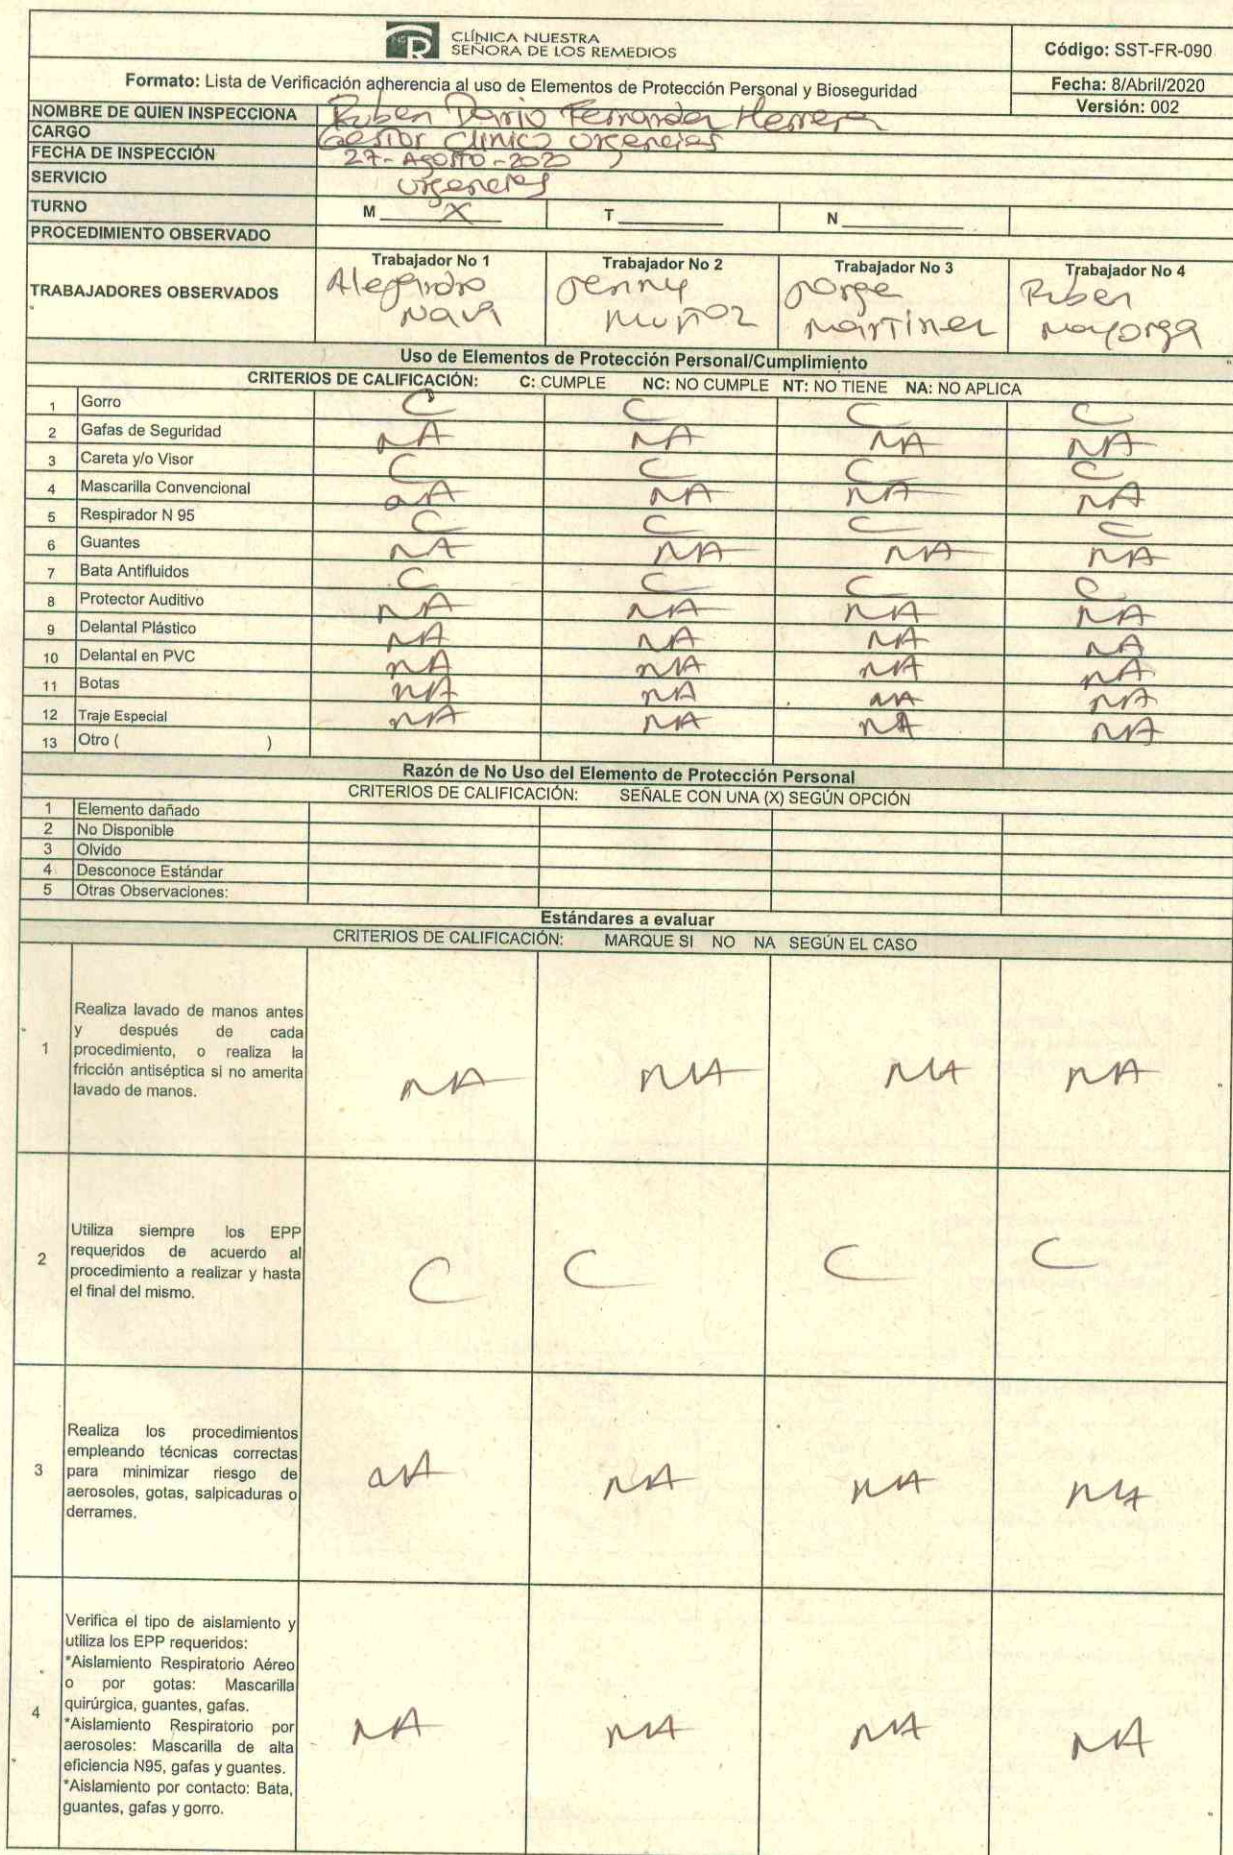 CLÍNICA NUESTRA
SEÑORA DE LOS REMEDIOS
Código: SST-FR-090
Formato: Lista de Verificación adherencia al uso de Elementos de Protección Personal y Bioseguridad
Fecha: 8/Abril/2020
Versión: 002
NOMBRE DE QUIEN INSPECCIONA Ruben Dario Fernandez Herrera
CARGO Gestor Clinico Urgencias
FECHA DE INSPECCIÓN 27-Agosto-2020
SERVICIO Urgencias
TURNO M X T N
PROCEDIMIENTO OBSERVADO
TRABAJADORES OBSERVADOS
Trabajador No 1 Trabajador No 2 Trabajador No 3 Trabajador No 4
Alejandro Jenny Jorge Ruben
Navia Muñoz Martinez Mayorga
Uso de Elementos de Protección Personal/Cumplimiento
CRITERIOS DE CALIFICACIÓN: C: CUMPLE NC: NO CUMPLE NT: NO TIENE NA: NO APLICA
1 Gorro C C C C
2 Gafas de Seguridad NA NA NA NA
3 Careta y/o Visor C C C C
4 Mascarilla Convencional NA NA NA NA
5 Respirador N 95 C C C C
6 Guantes NA NA NA NA
7 Bata Antifluidos C C C C
8 Protector Auditivo NA NA NA NA
9 Delantal Plástico NA NA NA NA
10 Delantal en PVC NA NA NA NA
11 Botas NA NA NA NA
12 Traje Especial NA NA NA NA
13 Otro ( )
Razón de No Uso del Elemento de Protección Personal
CRITERIOS DE CALIFICACIÓN: SEÑALE CON UNA (X) SEGÚN OPCIÓN
1 Elemento dañado
2 No Disponible
3 Olvido
4 Desconoce Estándar
5 Otras Observaciones:
Estándares a evaluar
CRITERIOS DE CALIFICACIÓN: MARQUE SI NO NA SEGÚN EL CASO
1
Realiza lavado de manos antes
y después de cada
procedimiento, o realiza la
fricción antiséptica si no amerita
lavado de manos.
NA NA NA NA
2
Utiliza siempre los EPP
requeridos de acuerdo al
procedimiento a realizar y hasta
el final del mismo.
C C C C
3
Realiza los procedimientos
empleando técnicas correctas
para minimizar riesgo de
aerosoles, gotas, salpicaduras o
derrames.
NA NA NA NA
4
Verifica el tipo de aislamiento y
utiliza los EPP requeridos:
*Aislamiento Respiratorio Aéreo
o por gotas: Mascarilla
quirúrgica, guantes, gafas.
*Aislamiento Respiratorio por
aerosoles: Mascarilla de alta
eficiencia N95, gafas y guantes.
*Aislamiento por contacto: Bata,
guantes, gafas y gorro.
NA NA NA NA